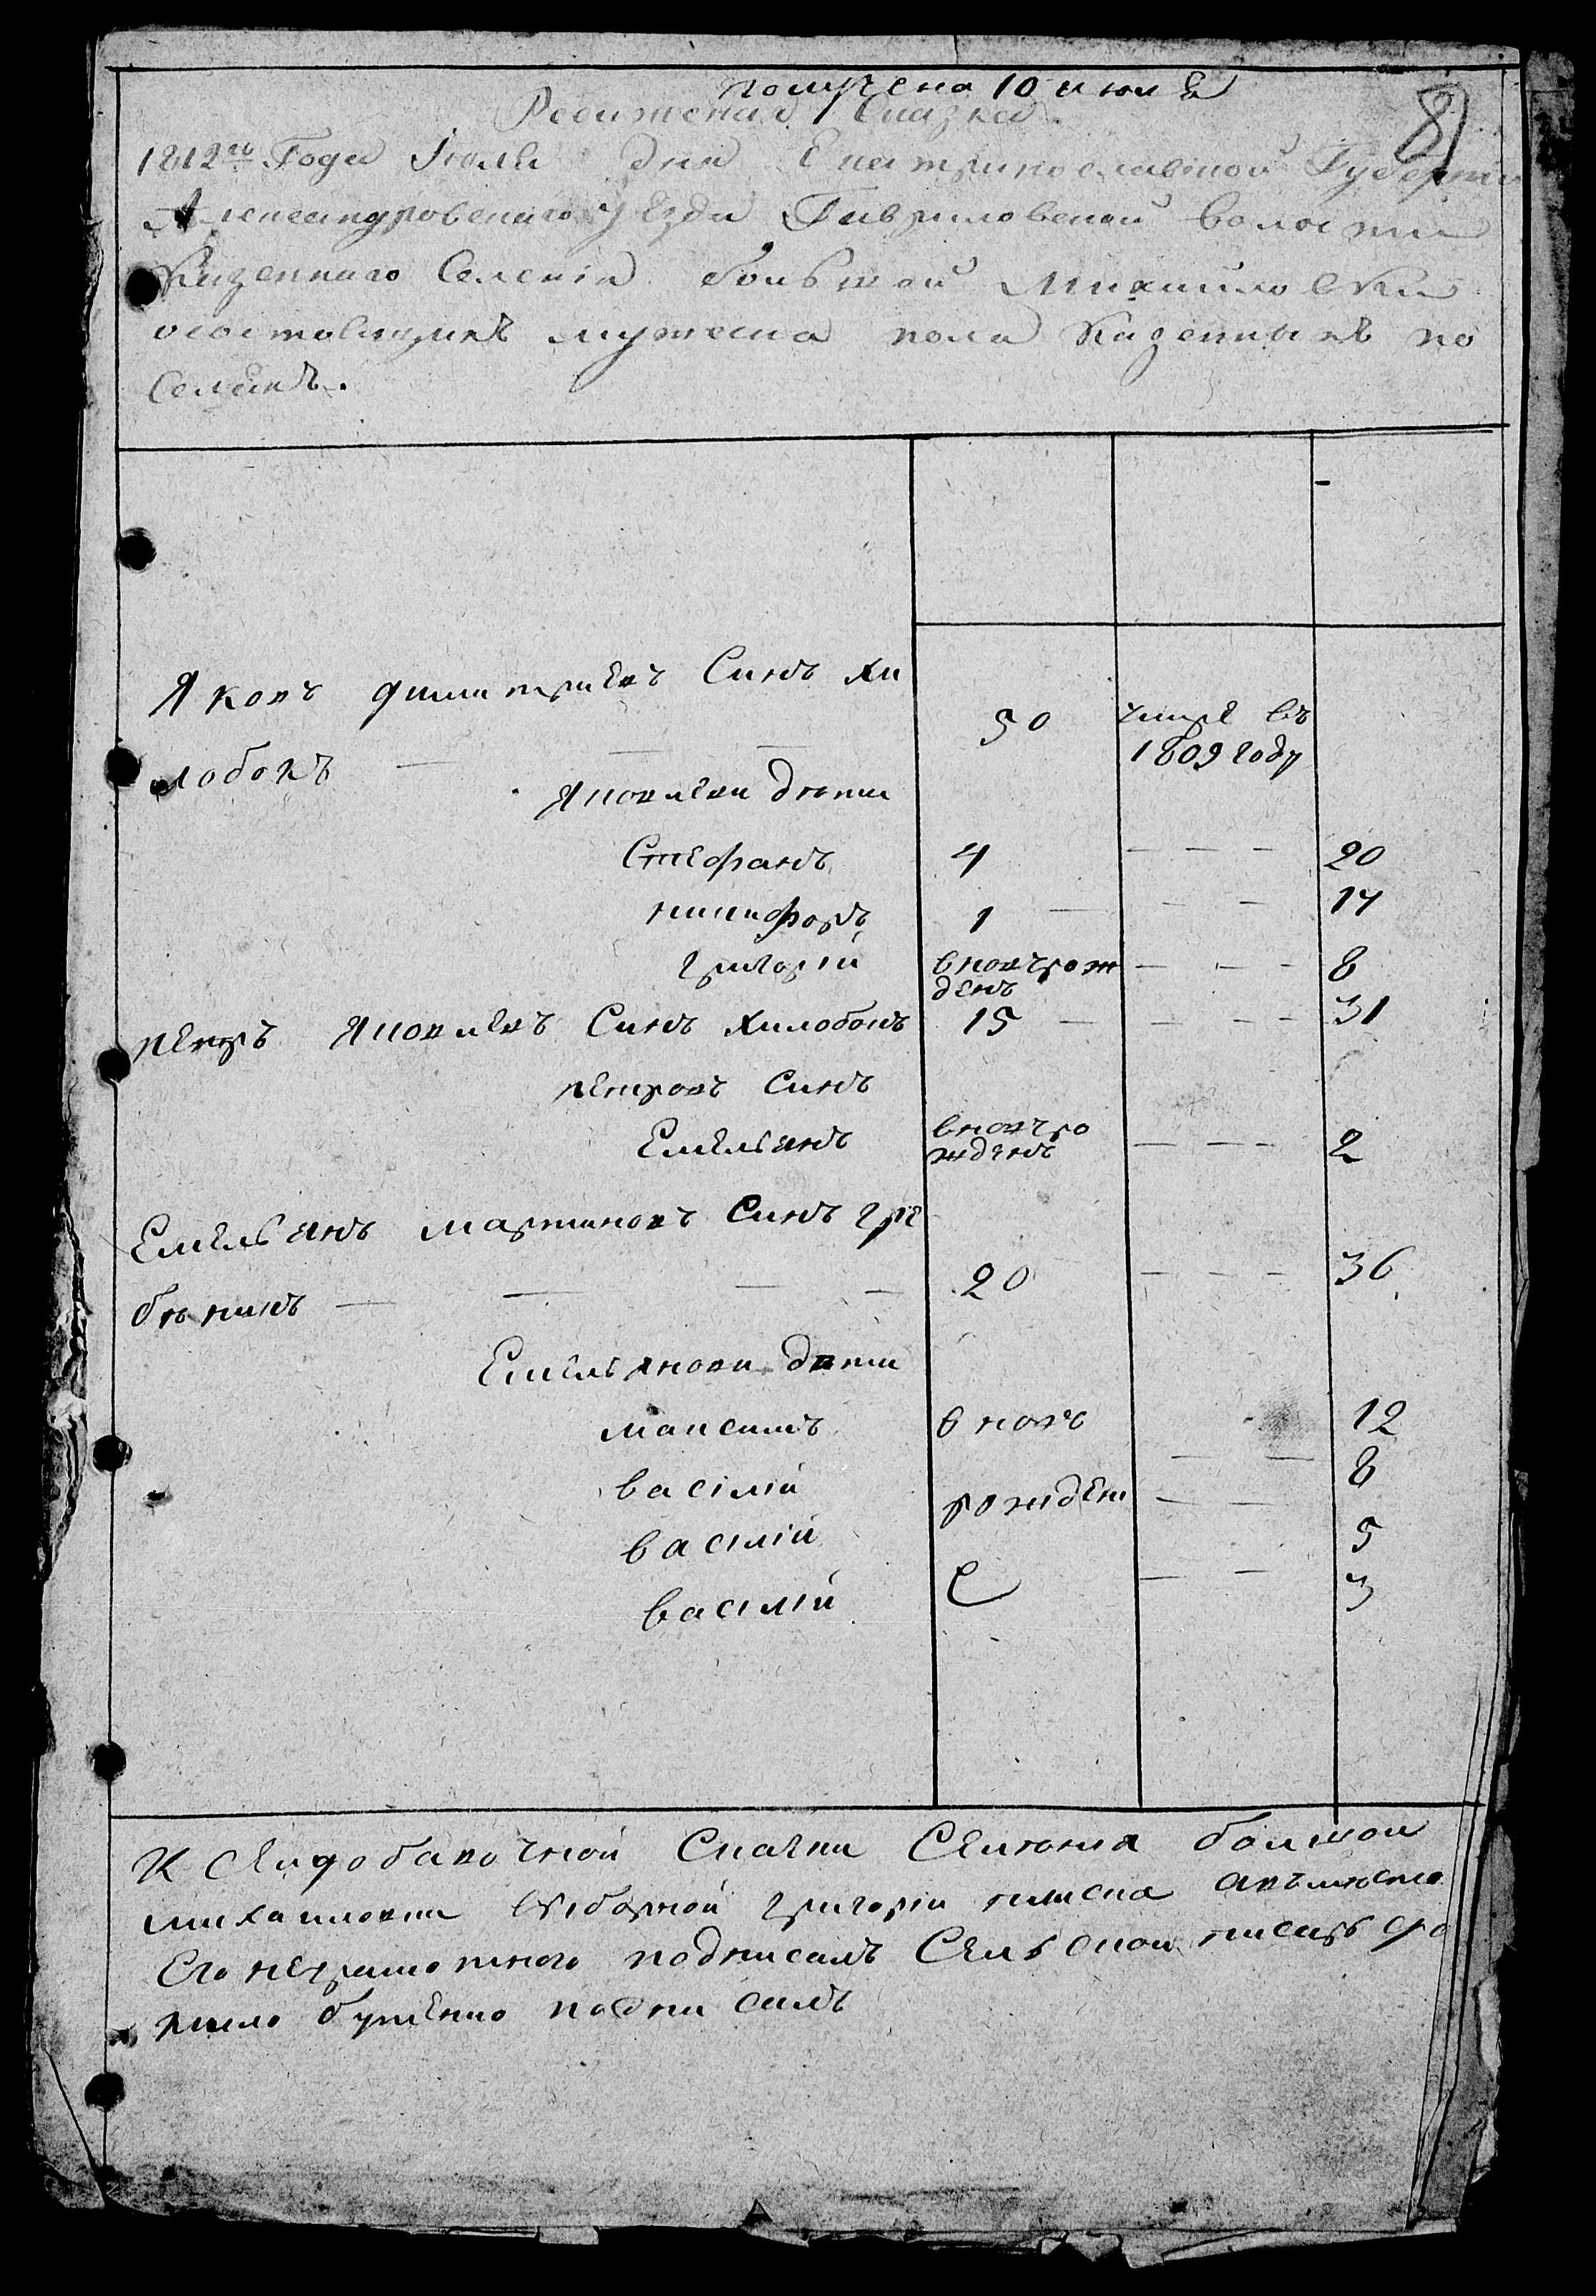 получена 10 июля
8
Ревижская Сказка
1812го Года Июля дня Екатеринославской Губернии
Александровского уезда Гавриловской волости
Казенного Селения большой Михайловки
осостоящихъ мужеска пола Казенныхъ по
Селянъ.
Яковъ Димитриевъ Синъ Хи
50 умре въ
лобокъ 1809 году
Яковлеви дѣти
Стефанъ 4 20
никифоръ 1 17
григорій вновърож 8
денъ
петръ Яковлевъ Синъ Хилобокъ 15 31
петровъ Синъ
Емельянъ вновъро 2
жденъ
Емельянъ мартиновъ Синъ гре
бѣникъ 20 36
Емельянови дѣти
максимъ вновъ 12
василій рожден 8
василій 5
василій е 3
К Сей добавочной Скаски Селенія болшой
михайловки виборной григорій
Его неграмотного подписалъ Сельской писарь
подписалъ